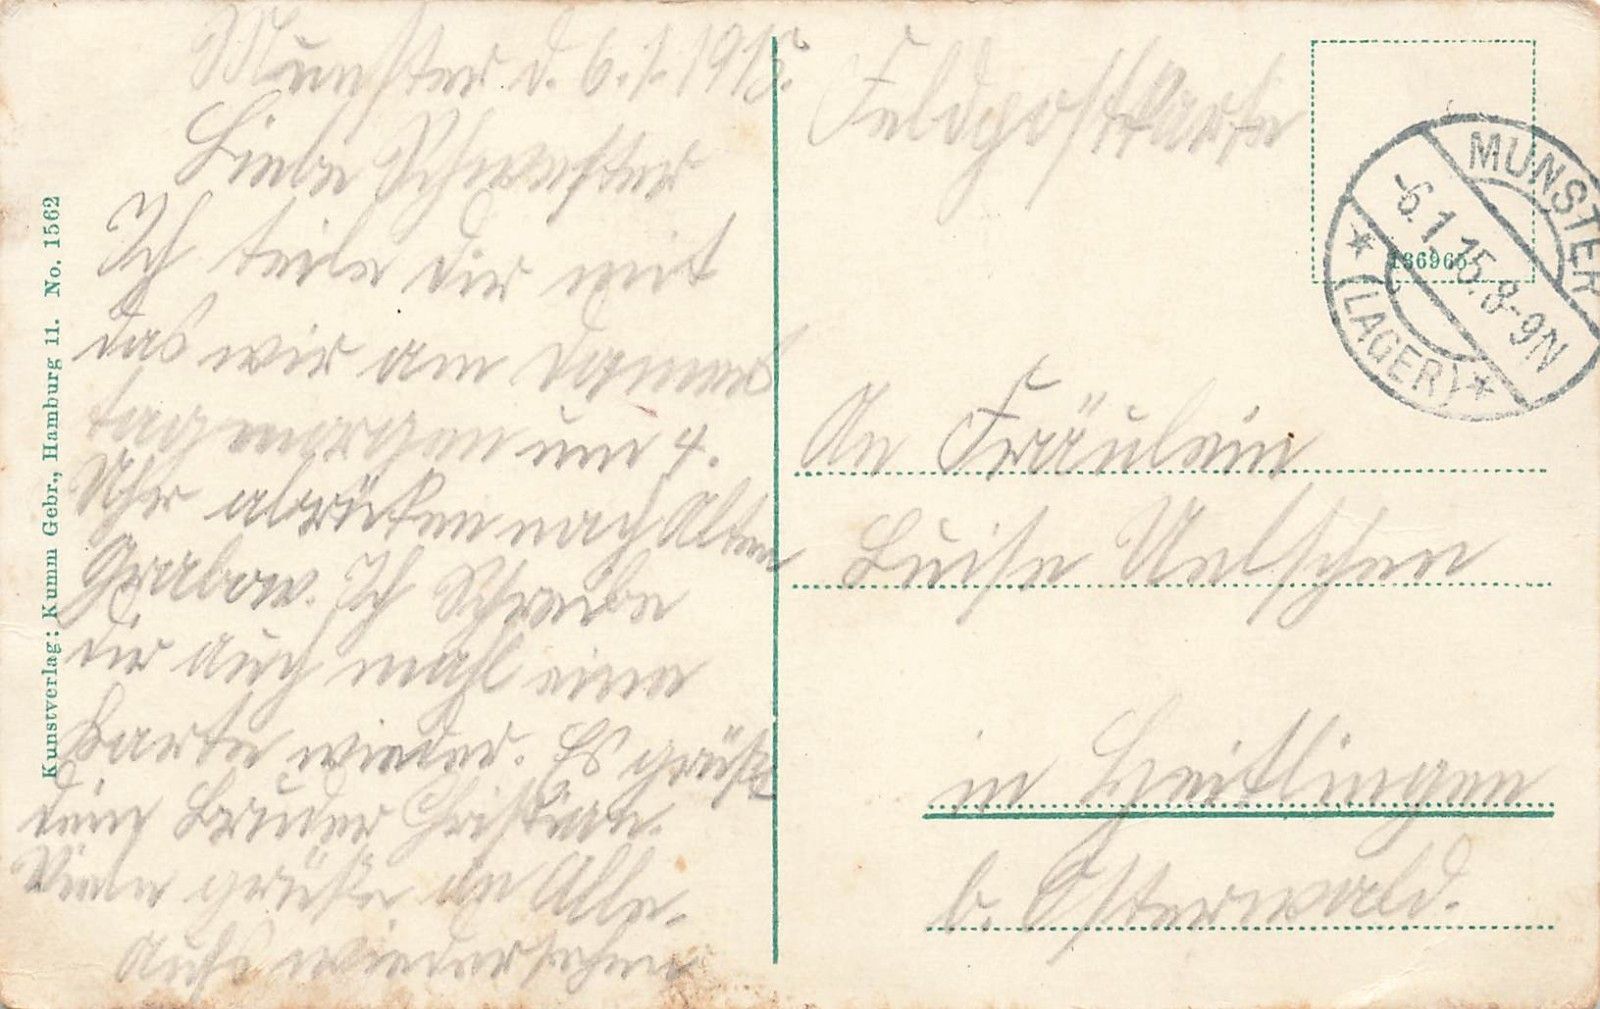 Munster d. 6.1.1915.
Liebe Schwester
Ich teile dir mit
das wir am Donners
tag morgen um 4.
Uhr abrücken nach Alten
Grabow. Ich Schreibe
dir auch mahl eine
Karte wieder. Es grüßt
dein Bruder Christian.
Viele grüße an Alle.
Aufs wiedersehen
Kunstverlag: Kumm Gebr., Hamburg 11. No. 1562
Feldpostkarte
136965
MUNSTER
-6.1.15.8-9N
* (LAGER) *
An Fräulein
Luise
in Heitlingen
b. Osterwald.